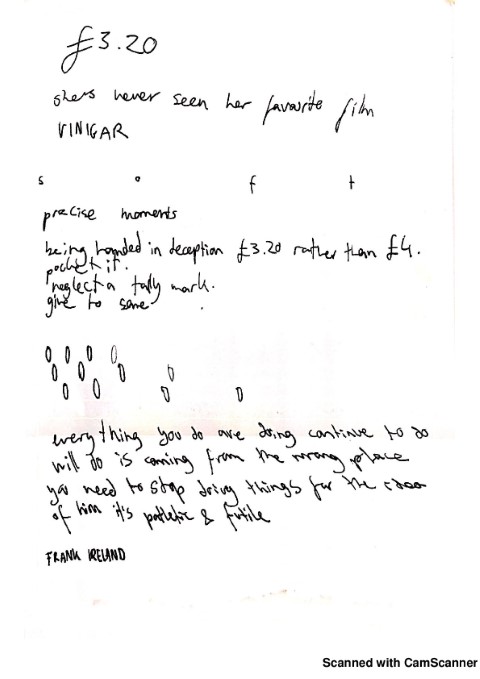 £3.20
shes never seen her favourite film
VINIGAR
s o f t
precise moments
being handed in deception £3.20 rather than £4.
pocket it.
neglect a tally mark.
give to some
0 0 0 0
0 0 0 0
0 0 0 0
everything you do are doing continue to do
will do is coming from the wrong place
you need to stop doing things for the
of him it's pathetic & futile
FRANK IRELAND
Scanned with CamScanner